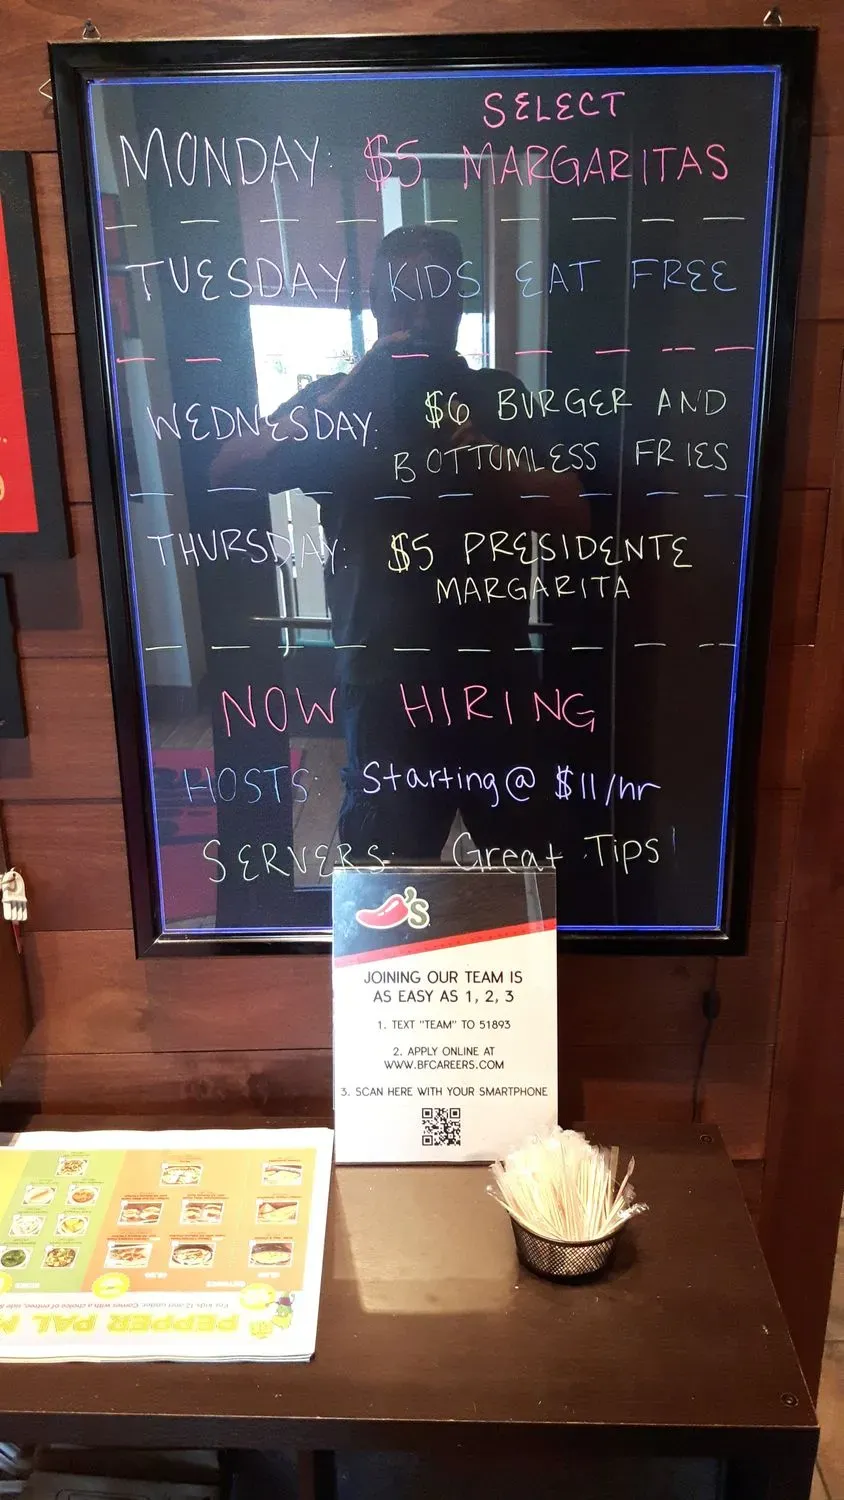 SELECT
MONDAY: $5 MARGARITAS
TUESDAY: KIDS EAT FREE
WEDNESDAY: $6 BURGER AND
BOTTOMLESS FRIES
THURSDAY: $5 PRESIDENTE
MARGARITA
NOW HIRING
HOSTS: Starting @ $11/hr
SERVERS: Great Tips!
'S
JOINING OUR TEAM IS
AS EASY AS 1, 2, 3
1. TEXT "TEAM" TO 51893
2. APPLY ONLINE AT
WWW.BFCAREERS.COM
3. SCAN HERE WITH YOUR SMARTPHONE
PEPPER PAL